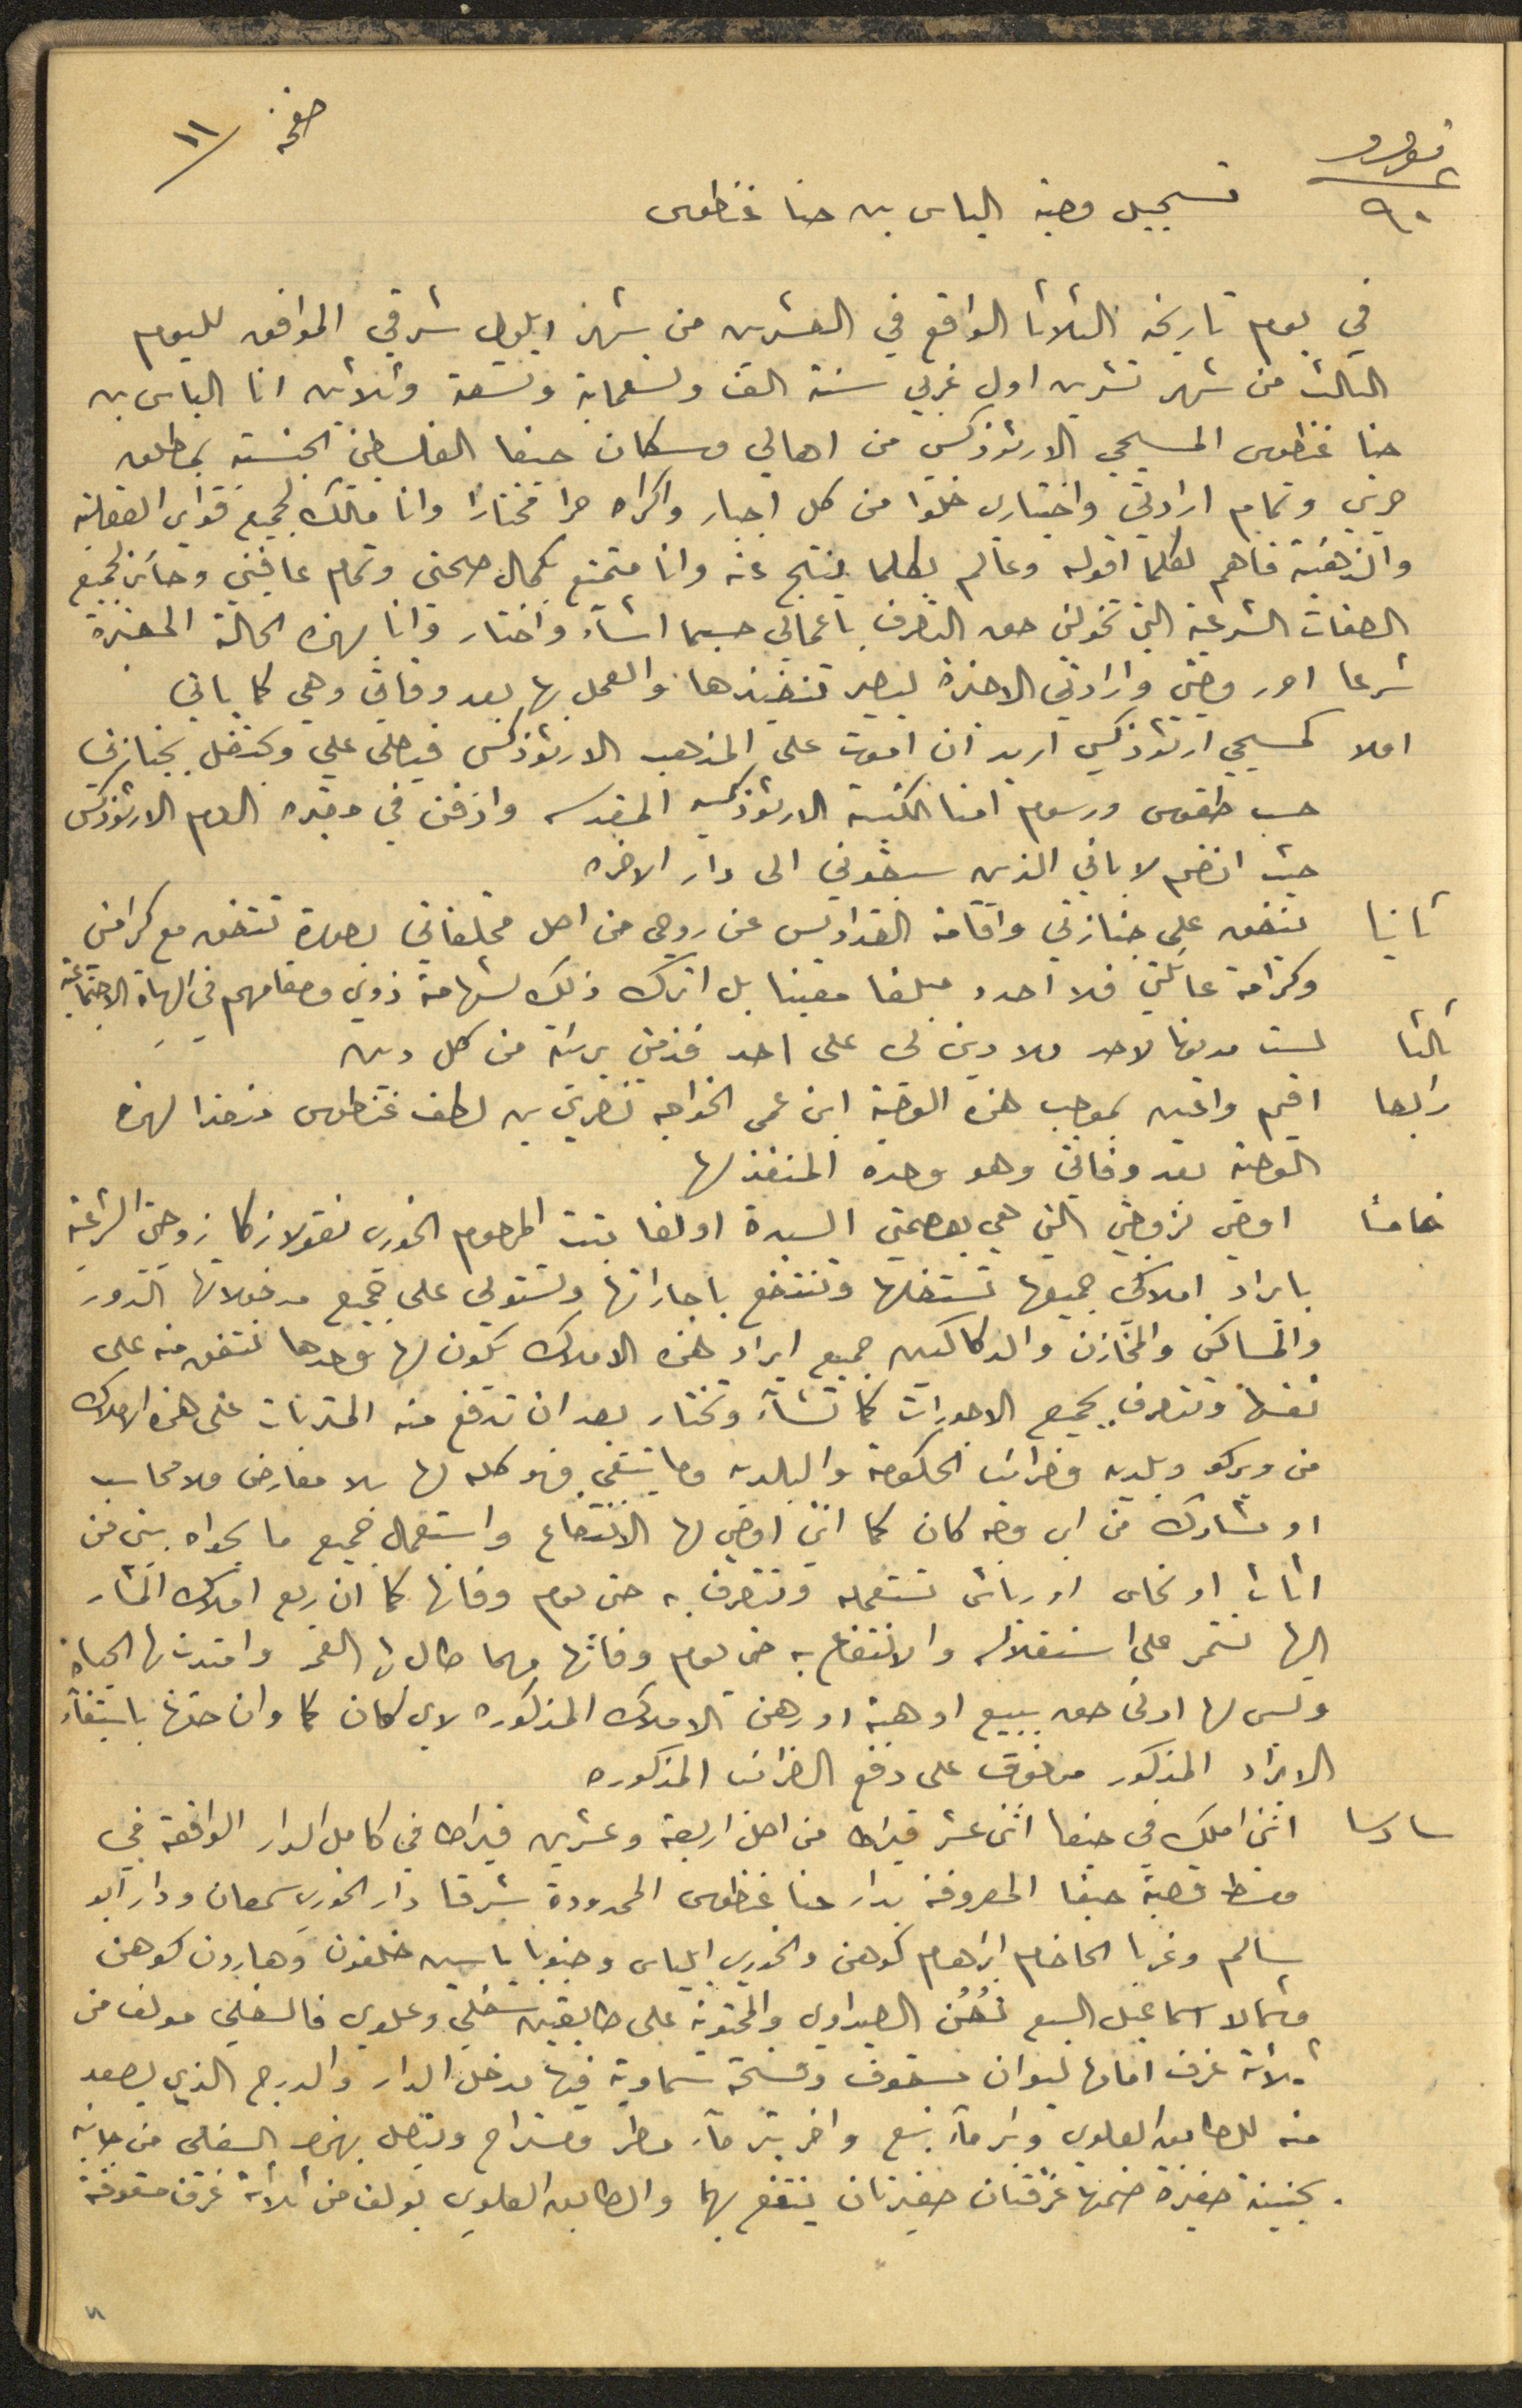 صفحة / ١١
نومرو
٩٠
تسجيل وصية الياس بن حنا غنطوس
في يوم تاريخه الثلاثا الواقع في العشرين من شهر ايلول شرقي الموافق لليوم
الثالث من شهر تشرين اول غربي سنة الف وتسعماية وتسعة وثلاثين انا الياس بن
حنا غنطوس المسيحي الارثوذكسي من اهالي وسكان حيفا الفلسطيني الجنسية بمطلق
حريتي وتمام ارادتي واختياري خلوا من كل اجبار واكراه حرا مختارا وانا مالك لجميع قواي العقلية
والذهنية فاهم لكلما اقوله وعالم بكلما ينتج عنه وانا متمتع بكمال صحتي وتمام عافيتي وحائز لجميع
الصفات الشرعية التي تخولني حق التصرف باعمالي حسبما اشآء واختار وانا بهذه الحالة المعتبرة
شرعا احرر وصيتي وارادتي الاخيرة ليصير تنفيذها والعمل بها بعد وفاتي وهي كما ياتي
اولا كمسيحي ارثوذكسي اريد ان اموت على المذهب الارثوذكسي فيصلى علي ويحتفل بجنازتي
حسب طقوس ورسوم امنا الكنيسة الارثوذكسية المقدسه وادفن في مقبرة الروم الارثوذكس
حيث انضم لابائي الذين سبقوني الى دار الاخره
ثانيا ينفق على جنازتي واقامة القداديس عن روحي من اصل مخلفاتي بصورة تتفق مع كرامتي
وكرامة عائلتي فلا احدد مبلغا معينا بل اترك ذلك لشهامة ذوي ومقامهم في الهيأة الاجتماعية
ثالثا لست مديونا لاحد ولا دين لي على احد فذمتي بريئة من كل دين
رابعا اقيم واعين بموجب هذه الوصية ابن عمي الخواجه نصري بن لطف غنطوس منفذا لهذه
الوصية بعد وفاتي وهو وحده المنفذ لها
خامسا اوصي لزوجتي التي هي بعصمتي السيدة اولغا بنت المرحوم الخوري نقولا زكا زوجتي الشرعية
بايراد املاكي جميعها تستغلها وتنتفع باجاراتها وتستولي على جميع مدخولاتها الدور
والمساكن والمخازن والدكاكين جميع ايراد هذه الاملاك يكون لها وحدها لتنفق منه على
نفسها وتتصرف بجميع الاجورات كما تشآء وتختار بعد ان تدفع منه المترتبات على هذه الاملاك
من ويركو وبلديه وضرائب الحكومة والبلديه وما يتبقى فهو كله لها بلا معارض ولا محاسب
او مشارك من اي وجه كان كما انني اوصي لها الانتفاع واستعمال جميع ما يحواه بيتي من
اثاث او نحاس او رياش تستعمله وتتصرف به حتى يوم وفاتها كما ان ريع املاكي المشار
اليها تستمر على استغلاله والانتفاع به حتى يوم وفاتها مهما طال بها العمر وامتدت بها الحياة
وليس لها ادنى حق ببيع او هبة او رهن الاملاك المذكوره لاي كان كما وان حقها باستيفاء
الايراد المذكور موقوف على دفع الضرائب المذكوره
سادسا انني املك في حيفا اثني عشر قيراط من اصل اربعة وعشرين قيراطا في كامل الدار الواقعة في
وسط قصبة حيفا المعروفة بدار حنا غنطوس المحدودة شرقا دار الخوري سمعان ودار ابو
سالم وغربا الحاخام ابرهام كوهن والخوري الياس وجنوبا ياسين خلفون وهارون كوهن
وشمالا اسماعيل السبع الصيداوي والمحتوية على طابقين سفلي وعلوي فالسفلي مولف من
ثلاثة غرف امامها ليوان مسقوف وفسحة سماوية فيها مدخل الدار والدرج الذي يصعد
منه للطابق العلوي وبئر مآء نبع واخر بئر مآء مطر ومستراح ويتصل بهذا السفلي من جانبه
بجنينة صغيرة ضمنها غرفتان صغيرتان ينتفع بهما والطابق العلوي يولف من ثلاثة غرف مسقوفة